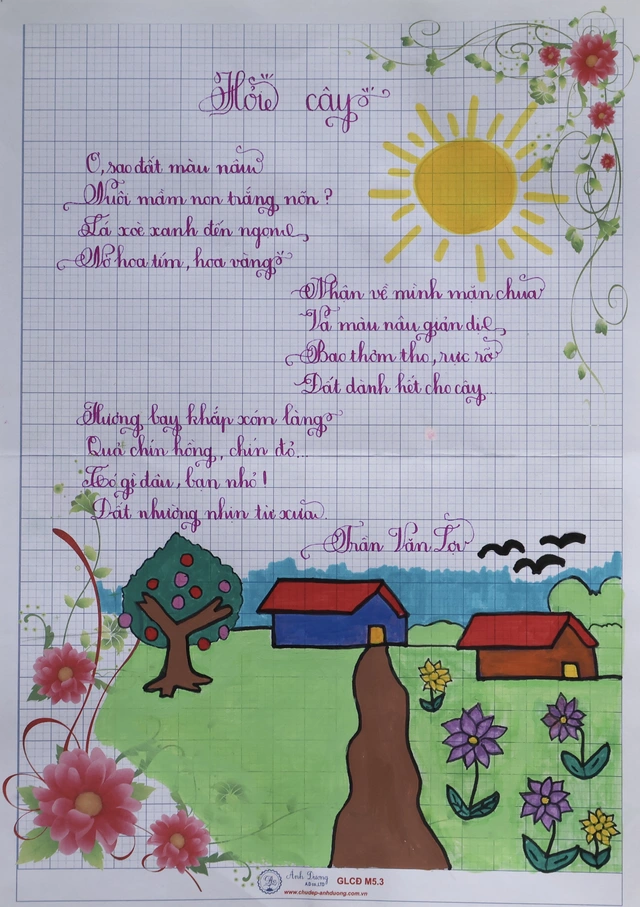 Hỏi cây
Ơ, sao đất màu nâu
Nuôi mầm non trắng nõn?
Lá xoè xanh đến ngọn
Nở hoa tím, hoa vàng
Nhận về mình mặn chua
Và màu nâu giản dị
Bao thơm tho, rực rỡ
Đất dành hết cho cây...
Hương bay khắp xóm làng
Quả chín hồng, chín đỏ...
Có gì đâu, bạn nhỏ!
Đất nhường nhịn từ xưa.
Trần Văn Lợi
Ánh Dương
GLCĐ M5.3
www.chudep-anhduong.com.vn